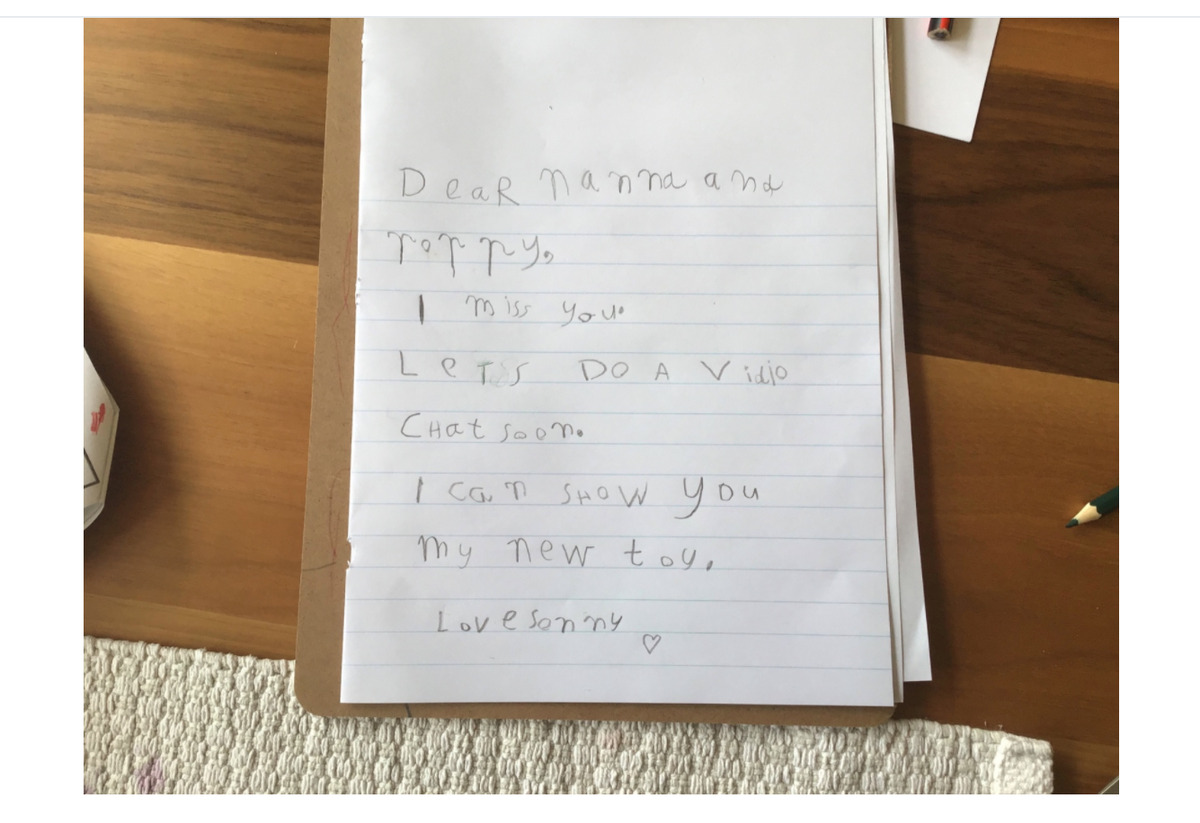 Dear nanna and
poppy,
I miss you.
LeTs DO A Vidjo
CHat soon.
I can SHOW you
my new toy.
Love sonny ♡